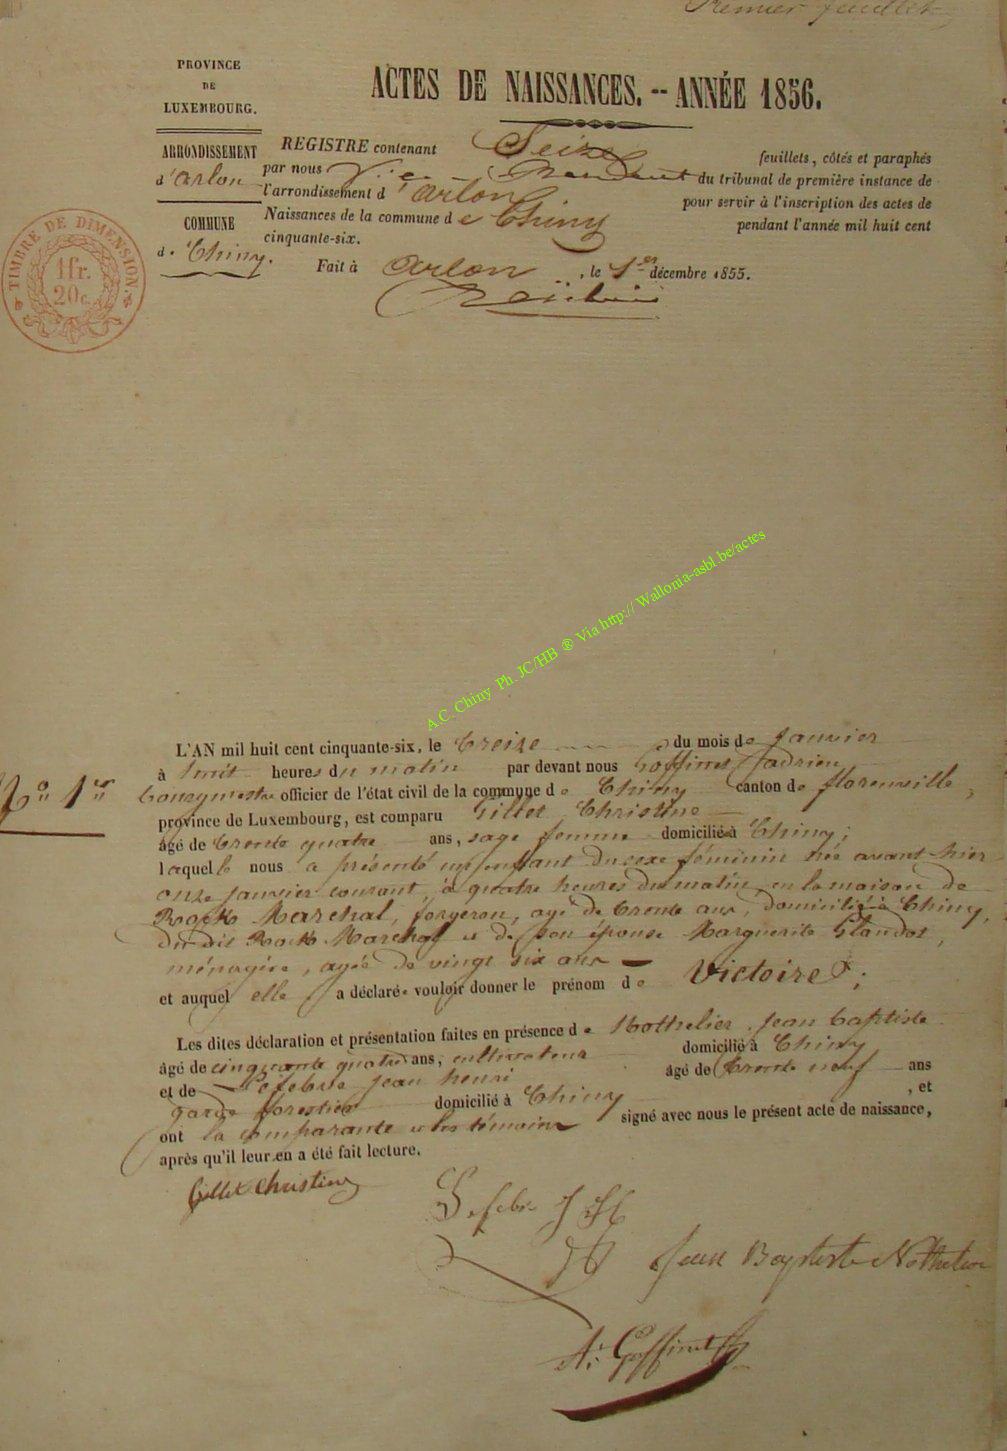 Premier feuillet
PROVINCE
DE
LUXEMBOURG.
ARRONDISSEMENT
d'Arlon
COMMUNE
de Chiny.
TIMBRE DE DIMENSION.
1 fr.
20 c.
ACTES DE NAISSANCES. -- ANNÉE 1856.
REGISTRE contenant Seize feuillets, côtés et paraphés
par nous Vice-Président du tribunal de première instance de
l'arrondissement d'Arlon pour servir à l'inscription des actes de
Naissances de la commune de Chiny pendant l'année mil huit cent
cinquante-six.
Fait à Arlon, le 1er décembre 1855.
A.C. Chiny Ph. JC/HB ® Via http:// Wallonia-asbl.be/actes
No 1er
L'AN mil huit cent cinquante-six, le treize du mois de janvier
à huit heures du matin par devant nous Goffinet, adrien
bourgmestre officier de l'état civil de la commune de Chiny canton de florenville,
province de Luxembourg, est comparu Gillet Christine
âgé de trente quatre ans, sage femme domiciliée à Chiny;
laquelle nous a présenté un enfant du sexe féminin née avant-hier
onze janvier courant, à quatre heures du matin en la maison de
Marchal, forgeron, agé de trente ans, domicilié à Chiny,
du dit Marchal et de son épouse Marguerite Glaudot,
ménagère, agée de vingt six ans
et auquel elle a déclaré vouloir donner le prénom de Victoire;
Les dites déclaration et présentation faites en présence de Nothelier, jean baptiste
âgé de cinquante quatre ans, cultivateur domicilié à Chiny
et de Lefebvre jean henri âgé de trente neuf ans
garde forestier domicilié à Chiny, et
ont la comparante et les témoins signé avec nous le présent acte de naissance,
après qu'il leur en a été fait lecture.
Gillet Christine
Lefebvre J H
Jean Baptiste Nothelier
A. Goffinet